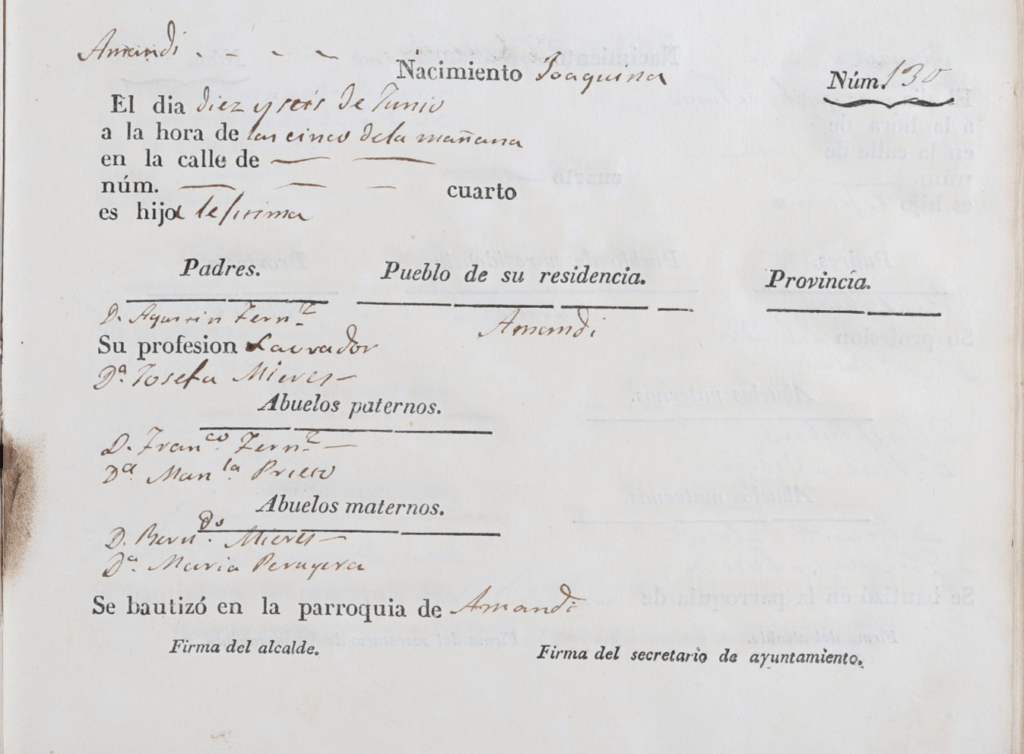 Amandi - - -
Nacimiento Joaquina
Núm. 130
El dia diez y seis de Junio
a la hora de las cinco de la mañana
en la calle de — —
núm. — — — cuarto
es hija lejitima
Padres. Pueblo de su residencia. Provincia.
D. Agustin Fernz
Amandi
Su profesion Lavrador
Da. Josefa Mieres —
Abuelos paternos.
D. Franco Fernz —
Da. Manla. Prieto
Abuelos maternos.
D. Berndo. Mieres —
Da. Maria Peruyera
Se bautizó en la parroquia de Amandi
Firma del alcalde. Firma del secretario de ayuntamiento.